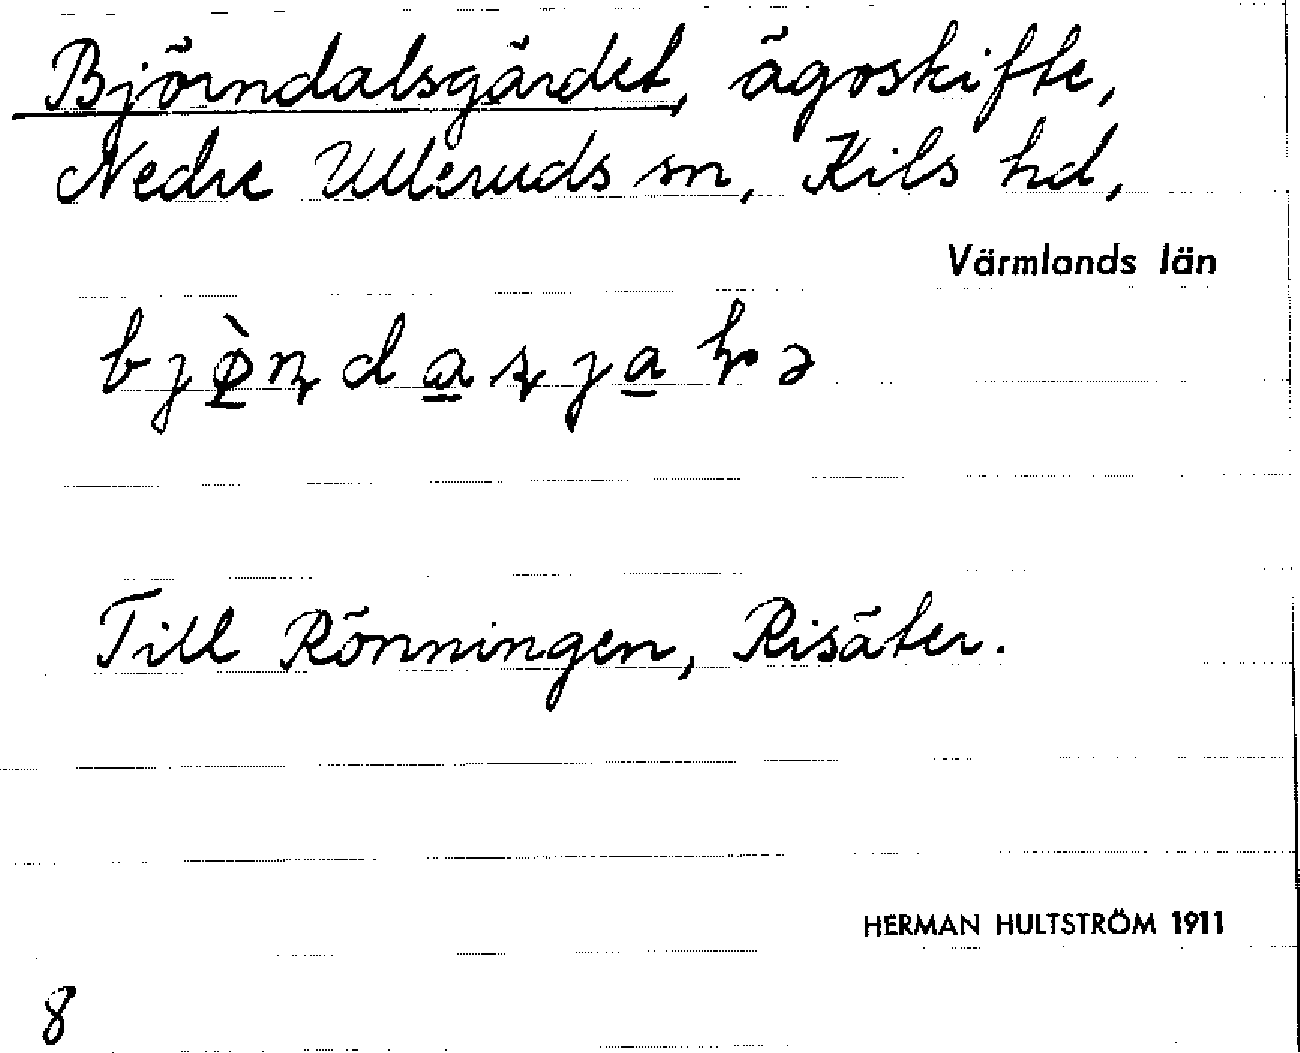 Björndalsgärdet, ägoskifte,
Nedre Ulleruds sn, Kils hd,
Värmlands län
bjø̠̀ɳda̠ʂja̠ɭə
Till Rönningen, Risäter.
HERMAN HULTSTRÖM 1911
8